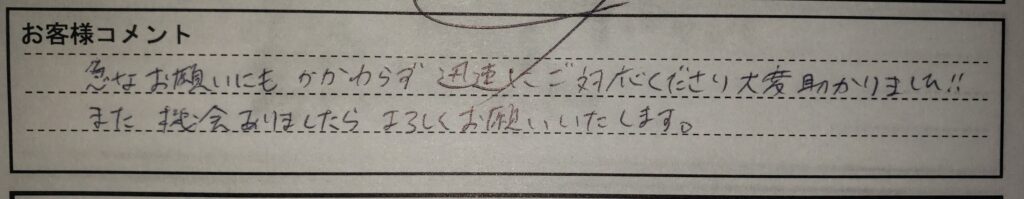 お客様コメント
急なお願いにも かかわらず 迅速に ご対応くださり大変助かりました!!
また 機会ありましたら よろしくお願いいたします。